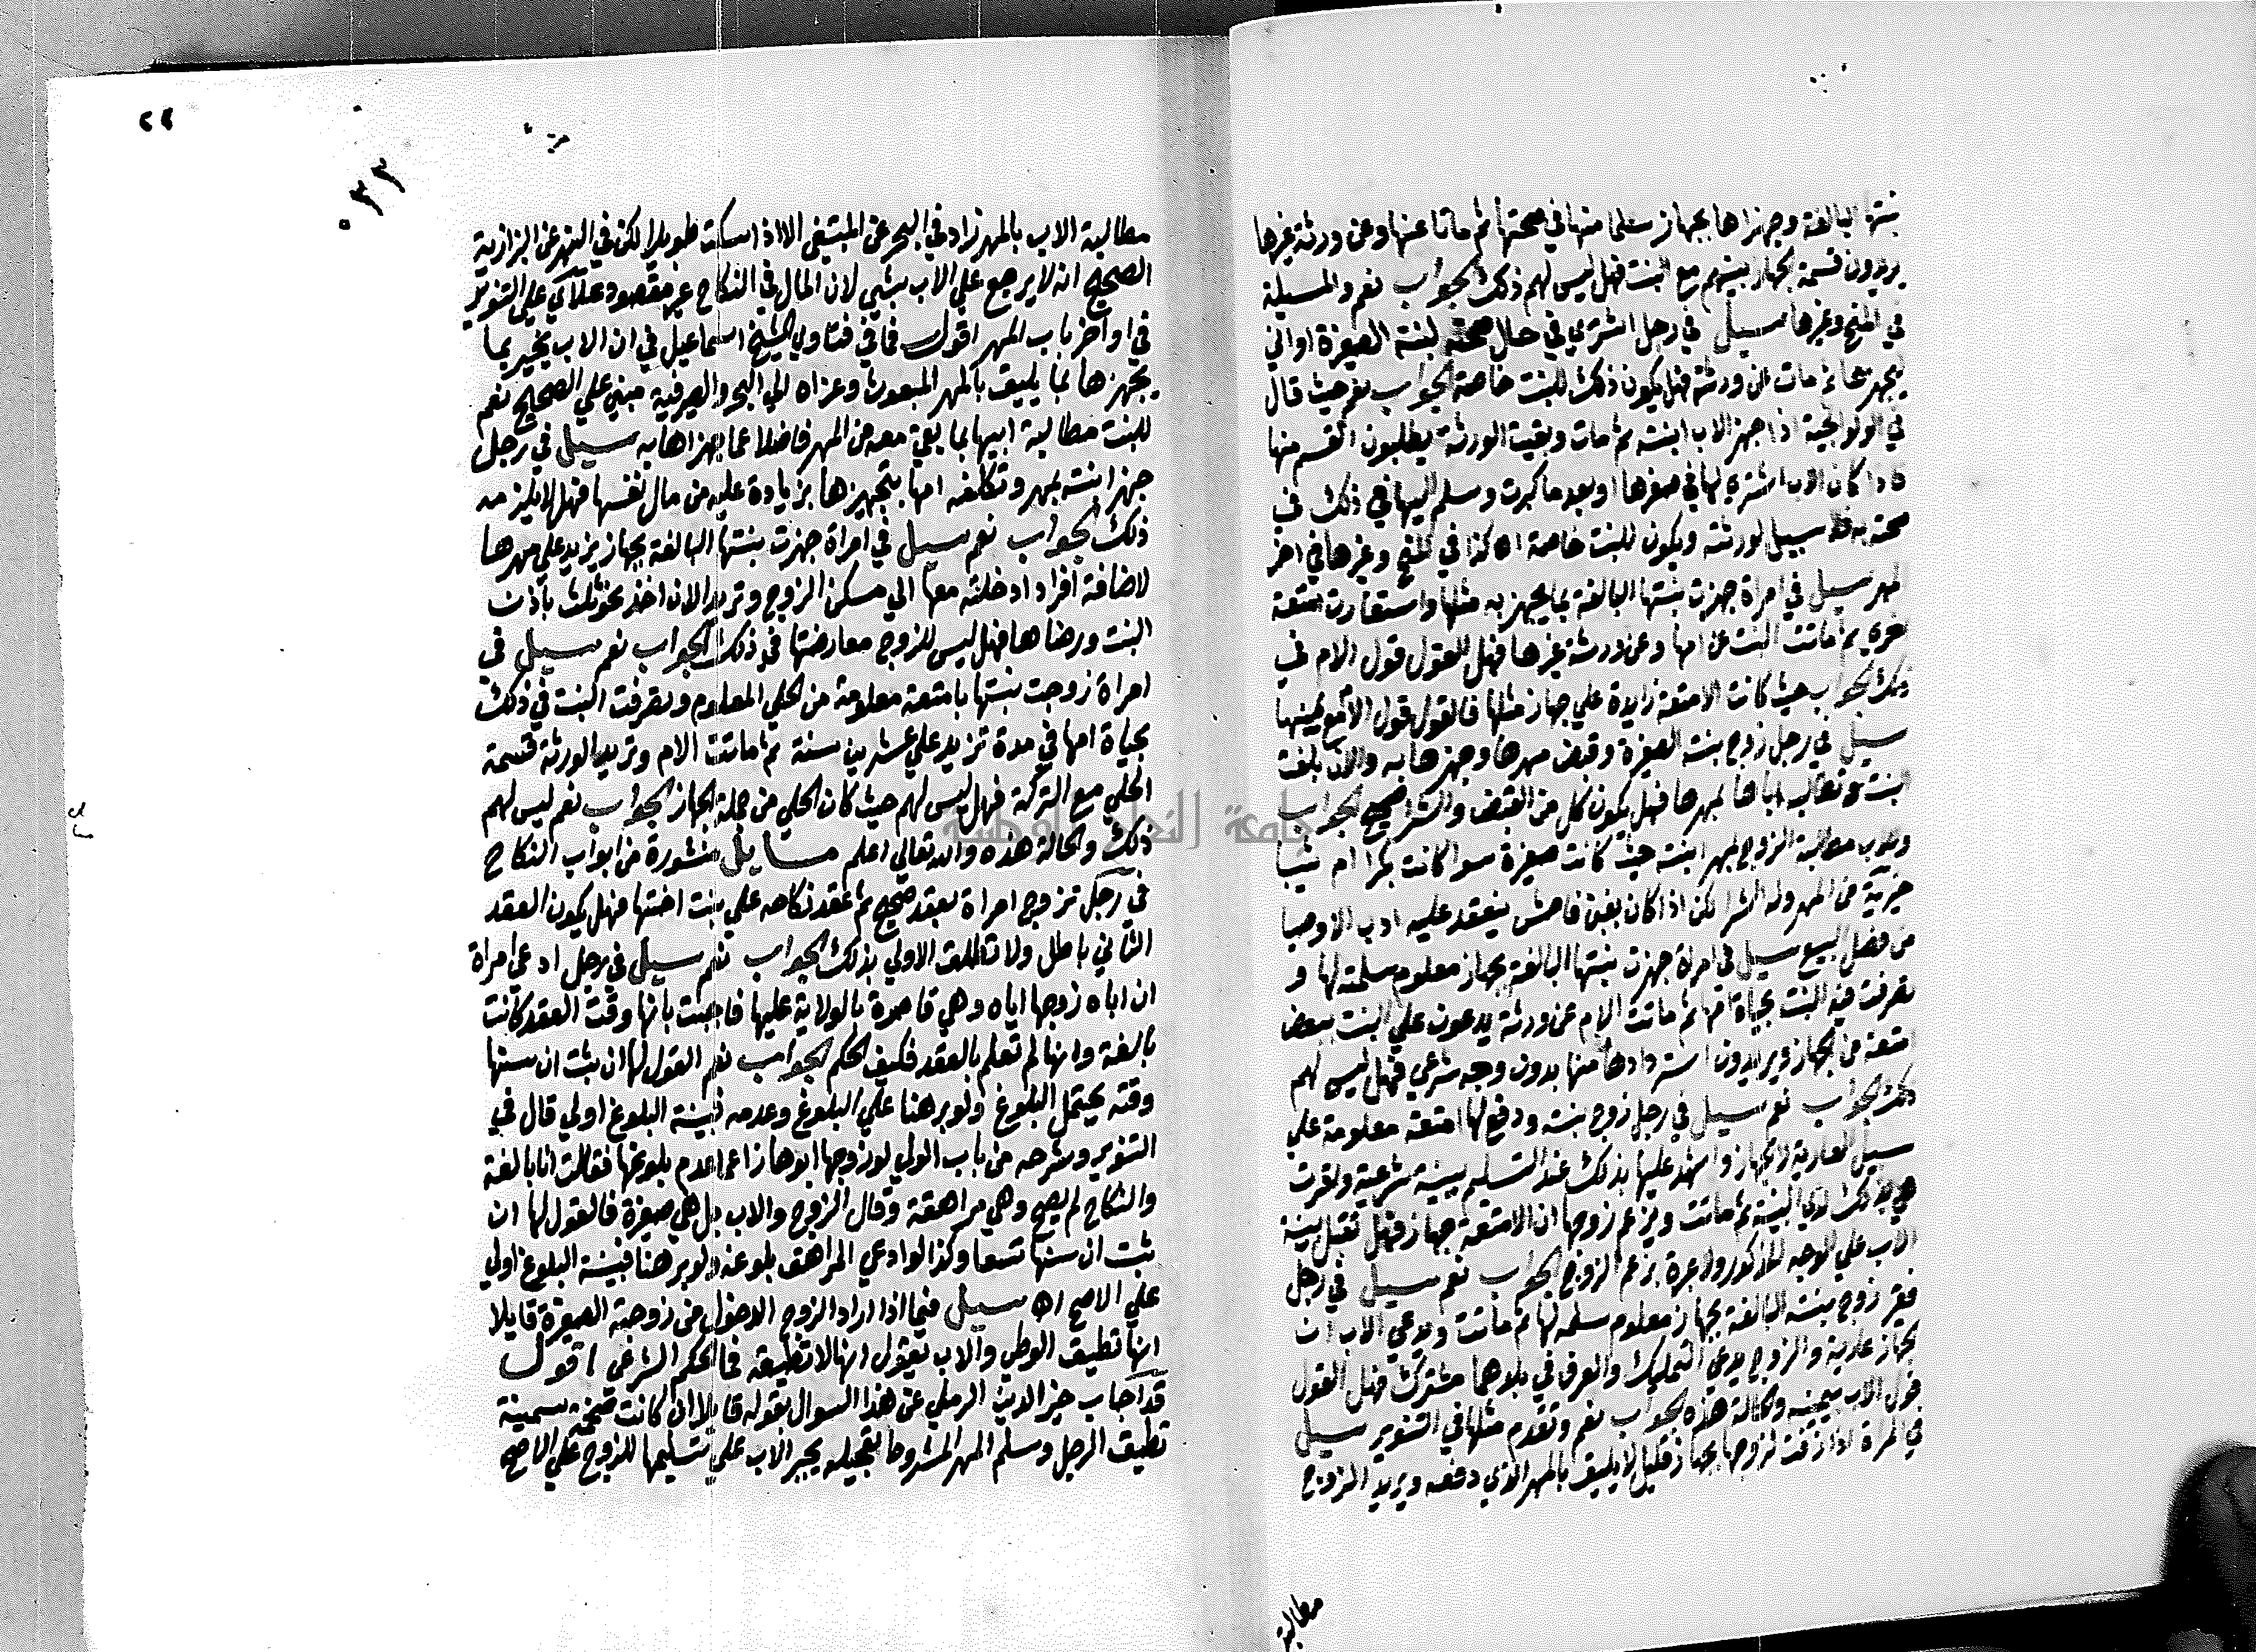 بنتها البالغة وجهزاها بجهاز سلما منها في صحتها ثم ماتا عنها وعن ورثة غيرها
يريدون قسمة الجهاز بينهم مع البنت فهل ليس لهم ذلك الجواب نعم والمسيلة
في المنح وغيرها سيل في رجل اشتري في حال صحته لبنته الصغيرة اواني
ليجهزها ثم مات عن ورثة فهل يكون ذلك للبنت خاصة الجواب نعم حيث قال
في الولوالجية اذا جهز الاب ابنته ثم مات وبقيت الورثة يطلبون القسم منها
فاذا كان الاب اشتري لها في صغرها او بعد ما كبرت وسلم اليها في ذلك في
صحته فلا سبيل لورثته ويكون للبنت خاصة اه كذا في المنح وغيرها في اخر
المهر سيل في امراة جهزت بنتها البالغة بما يجهز به مثلها واستعارت امتعة
اخري ثم ماتت البنت عن امها وعن ورثة غيرها فهل القول قول الام في
ذلك الجواب حيث كانت الامتعة زايدة علي جهاز مثلها فالقول قول الام مع يمينها
سيل في رجل زوج بنته الصغيرة وقبض مهرها وجهزها به والان بلغت
البنت وتطالب اباها بمهرها فهل يكون كل من القبض والشرا صحيح الجواب
وللاب مطالبة الزوج بمهر ابنته حيث كانت صغيرة سوا كانت بكرا ام ثيبا
خيرية من المهر وله الشرا لكن اذا كان بغبن فاحش ينعقد عليه ادب الاوصيا
من فصل البيع سيل في امراة جهزت بنتها البالغة بجهاز معلوم سلمته لها و
تصرفت فيه البنت بحياة امها ثم ماتت الام عن ورثة يدعون علي البنت ببعض
امتعة من الجهاز ويريدون استردادها منها بدون وجه شرعي فهل ليس لهم
ذلك الجواب نعم سيل في رجل زوج بنته ودفع لها امتعة معلومة علي
سبيل العارية لا الجهاز واشهد عليها بذلك عند التسليم ببينة شرعية واقرت
هي بذلك لدي البينة ثم ماتت ويزعم زوجها ان الامتعة جهاز فهل تقبل بينة
الاب علي الوجه المذكور ولا عبرة بزعم الزوج الجواب نعم سيل في رجل
فقير زوج بنته البالغة بجهاز معلوم سلمه لها ثم ماتت ويدعي الاب ان
الجهاز عارية والزوج يدعي التمليك والعرف في بلادهما مشترك فهل القول
قول الاب بيمينه والحالة هذه الجواب نعم وتقدم مثلها في التنوير سيل
في المراة اذا زفت لزوجها بجهاز قليل لا يليق بالمهر الذي دفعه ويريد الزوج
مطالبة
٢٢
٠٣٣
مطالبة الاب بالمهر زاد في البحر عن المبتغي الا اذا سكت طويلا لكن في النهر عن البزازية
الصحيح انه لا يرجع علي الاب بشي لان المال في النكاح غير مقصود علائي علي التنوير
في اواخر باب المهر اقول فما في فتاوي الشيخ اسماعيل في ان الاب يخير بما
يجهزها بما يليق بالمهر المبعوث وعزاه الي البحر والصيرفية مبني علي الصحيح نعم
للبنت مطالبة ابيها بما بقي معه من المهر فاضلا عما جهزاها به سيل في رجل
جهز ابنته بمهر وتكلفه امها بتجهيزها بزيادة عليه من مال نفسها فهل لا يلزمه
ذلك الجواب نعم سيل في امراة جهزت بنتها البالغة بجهاز يزيد علي مهرها
لاضافة افراد ادخلته معها الي مسكن الزوج وتريد الان اخذ نحو ثلث باذن
البنت ورضاها فهل ليس للزوج معارضتها في ذلك الجواب نعم سيل في
امراة زوجت بنتها بامتعة معلومة من الحلي المعلوم وتصرفت البنت في ذلك
بحياة امها في مدة تزيد علي عشرين سنة ثم ماتت الام وتريد الورثة قسمة
الحلي مع التركة فهل ليس لهم حيث كان الحلي من جملة الجهاز الجواب نعم ليس لهم
ذلك والحالة هذه والله تعالي اعلم مسايل منثورة من ابواب النكاح
في رجل تزوج امراة بعقد صحيح ثم عقد نكاحه علي بنت اختها فهل يكون العقد
الثاني باطل ولا تطلق الاولي بذلك الجواب نعم سيل في رجل ادعي امراة
ان اباه زوجها اياه وهي قاصرة بالولاية عليها فاجابت بانها وقت العقد كانت
بالغة وانها لم تعلم بالعقد فكيف الحكم الجواب نعم القول لها ان ثبت ان سنها
وقته يحتمل البلوغ ولو برهنا علي البلوغ وعدمه فبينة البلوغ اولي قال في
التنوير وشرحه من باب الولي لو زوجها ابوها زاعما عدم بلوغها فقالت انا بالغة
والنكاح لم يصح وهي مراهقة وقال الزوج والاب بل هي صغيرة فالقول لها ان
ثبت ان سنها تسعا وكذا لو ادعي المراهق بلوغه ولو برهنا فبينة البلوغ اولي
علي الاصح اه سيل فيما اذا اراد الزوج الدخول في زوجته الصغيرة قايلا
انها تطيق الوطي والاب يقول انها لا تطيقه فما الحكم الشرعي اقول
قد اجاب خير الدين الرملي عن هذا السوال بقوله قايلا ان كانت ضخمة سمينة
تطيق الرجل وسلم المهر المشروط تعجيله يجبر الاب علي تسليمها للزوج علي الاصح
جامعة النجاح الوطنية